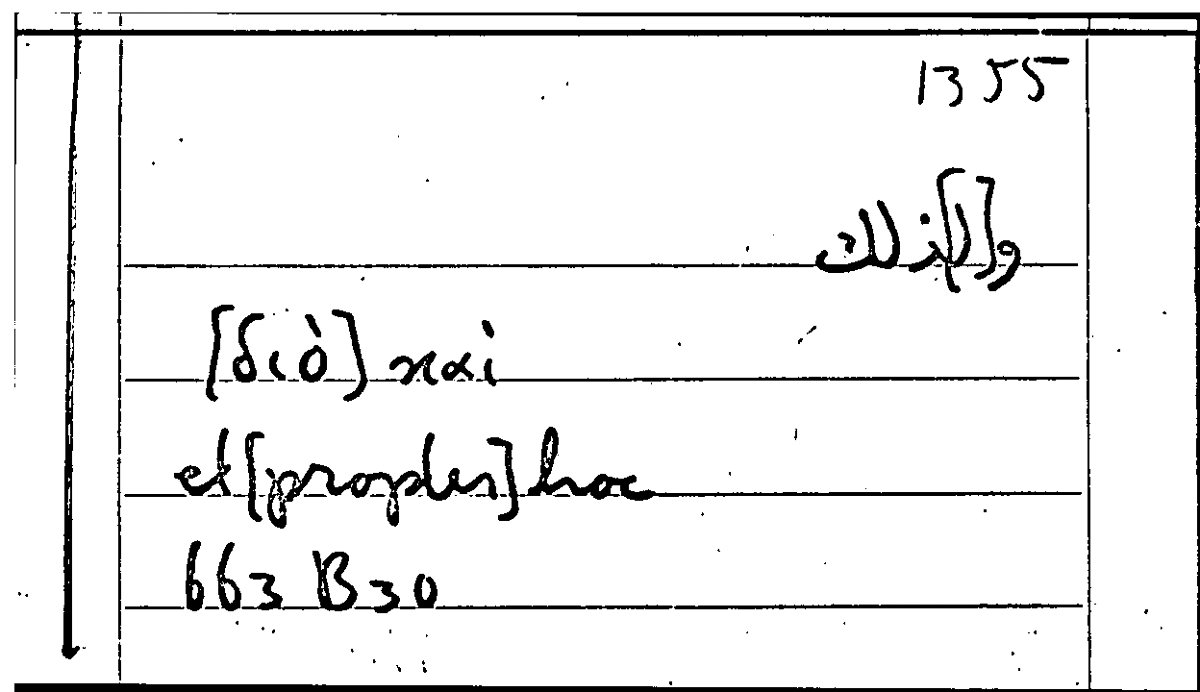 1355
و[ل]ذلك
[διὸ] καὶ
et [propter] hoc
663 B 30